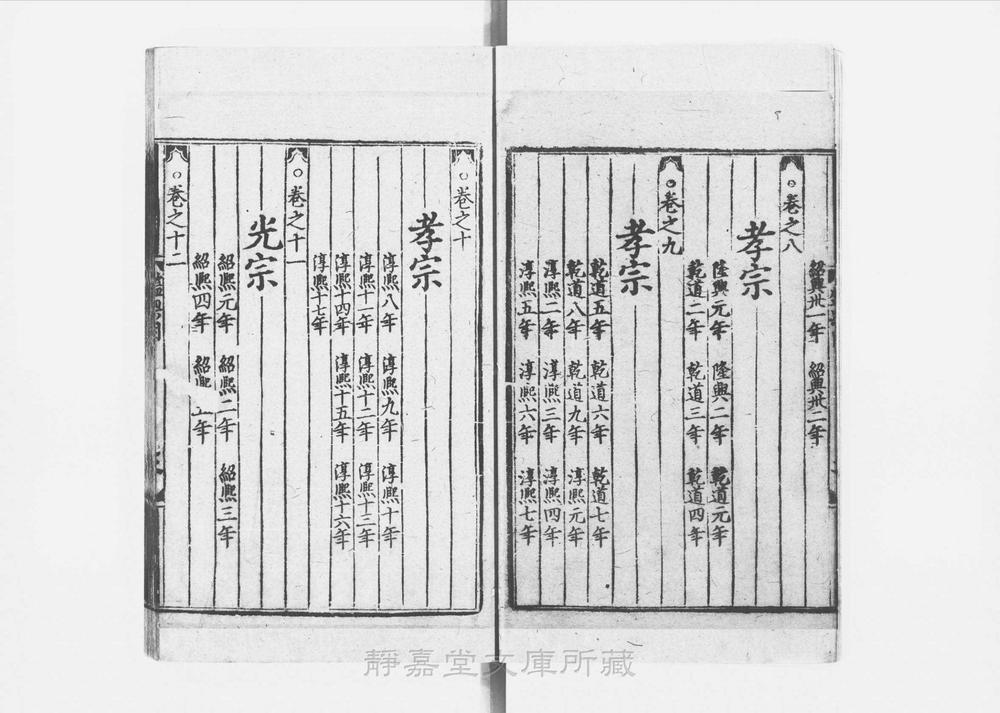 紹興卅一年 紹興卅二年
○卷之八
孝宗
隆興元年 隆興二年 乾道元年
乾道二年 乾道三年 乾道四年
○卷之九
孝宗
乾道五年 乾道六年 乾道七年
乾道八年 乾道九年 淳熙元年
淳熙二年 淳熙三年 淳熙四年
淳熙五年 淳熙六年 淳熙七年
○卷之十
孝宗
淳熙八年 淳熙九年 淳熙十年
淳熙十一年 淳熙十二年 淳熙十三年
淳熙十四年 淳熙十五年 淳熙十六年
淳熙十七年
○卷之十一
光宗
紹熙元年 紹熙二年 紹熙三年
紹熙四年 紹熙 年
○卷之十二
靜嘉堂文庫所藏